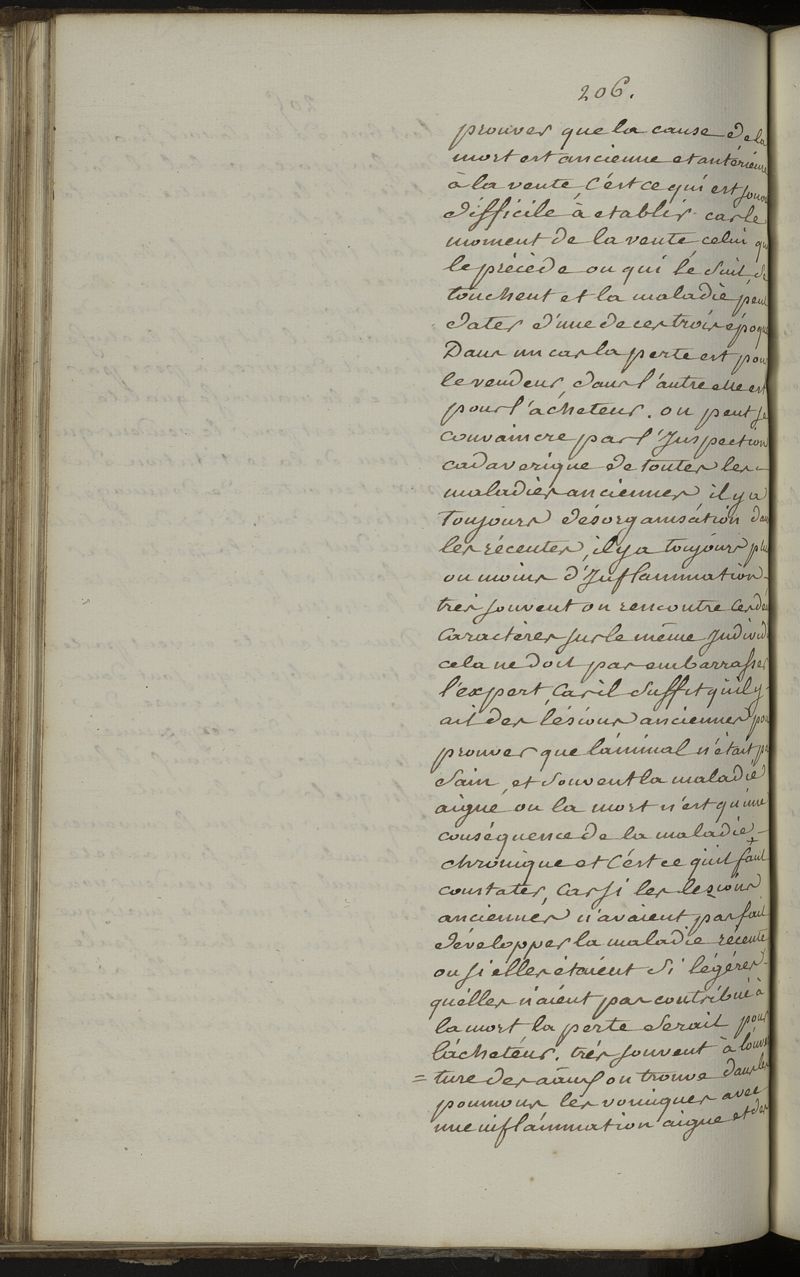 206.
prouver que la cause de la
mort est ancienne et antérieure
à la vente, c'est ce qui est souv
difficile à etablir car le
moment de la vente celui qu
le précède ou qui le suit, se
touchent et la maladie peut
dater d'une de ces trois époqu
Dans un cas la perte est pour
le vendeur, dans l'autre elle est
pour l'acheteur. on peut se
convaincre par l'Inspection
cadaverique de toutes les
maladies anciennes, il y a
toujours désorganisation dans
les récentes, il y a toujours plu
ou moins d'Inflammation
très souvent on rencontre ces de
caractères sur le même Individ
cela ne doit pas embarrasser
l'expert, car il suffit qu'il y
ait des lésions anciennes pou
prouver que l'animal n'était pa
sain, et souvent la maladie
aigue ou la mort n'est qu'une
conséquence de la maladie
chronique et c'est ce qu'il faut
constater, car si les lezions
anciennes n'avaient pas fait
développer la maladie recente
ou si elles étaient si légères
qu'elles n'aient pas contribué à
la mort la perte serait pour
l'acheteur. très souvent à l'ouver
= ture des a͞ãux on trouve dans les
poumons les vomiques avec
une inflammation aigue et des